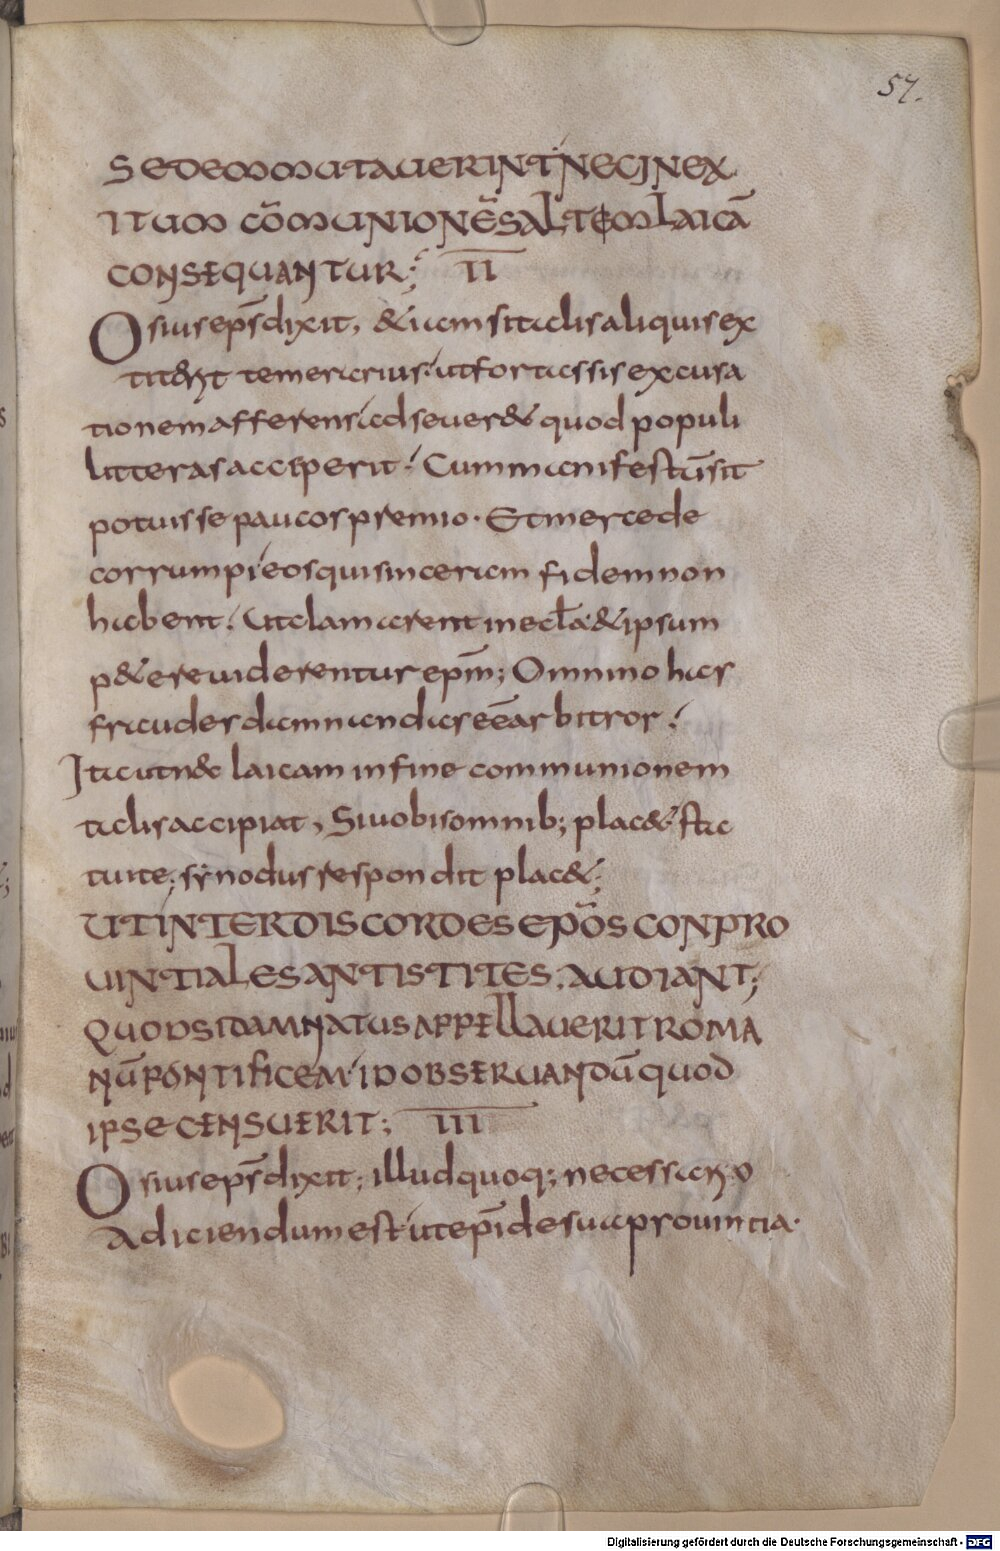 57.
SEDEM MUTAUERINT NEC IN EX
ITUM CŌMUNIONĒ SALTEM LAICĀ
CONSEQUANTUR; II
Osius ep̄s dixit, & iam si talis aliquis ex
titerit temerarius, ut fortassis excusa
tionem afferens ad seuer& quod populi
litteras acciperit; Cum manifestū sit
potuisse paucos premio. Et mercede
corrumpi eos qui sinceram fidem non
habent; Ut clamarent in eclā & ipsum
p&ere uiderentur ep̄m; Omnino has
fraudes damnandas eē arbitror;
Ita ut n& laicam in fine communionem
talis accipiat, Si uobis omnib; plac& sta
tuite; synodus respondit plac&;
UT INTER DISCORDES EP̄OS CONPRO
UINTIALES ANTISTITES AUDIANT;
QUOD SI DAMNATUS APPELLAUERIT ROMA
NŪ PONTIFICEM ID OBSERUANDŪ QUOD
IPSE CENSUERIT; III
Osius ep̄s dixit; illud quoq; necessario
Adiciendum est ut ep̄i de sua prouintia.
Digitalisierung gefördert durch die Deutsche Forschungsgemeinschaft - DFG